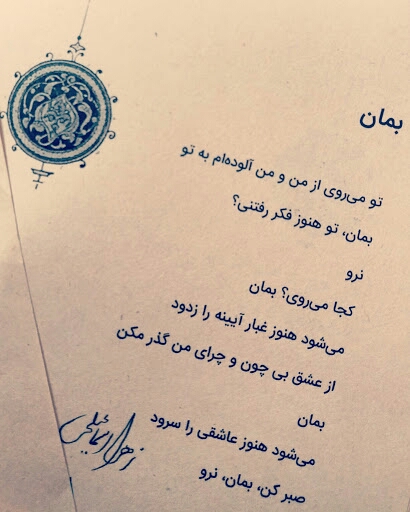 بمان
تو می‌روی از من و من آلوده‌ام به تو
بمان، تو هنوز فکر رفتنی؟
نرو
کجا می‌روی؟ بمان
می‌شود هنوز غبار آیینه را زدود
از عشق بی چون و چرای من گذر مکن
بمان
می‌شود هنوز عاشقی را سرود
صبر کن، بمان، نرو
زهرا اسماعیلی